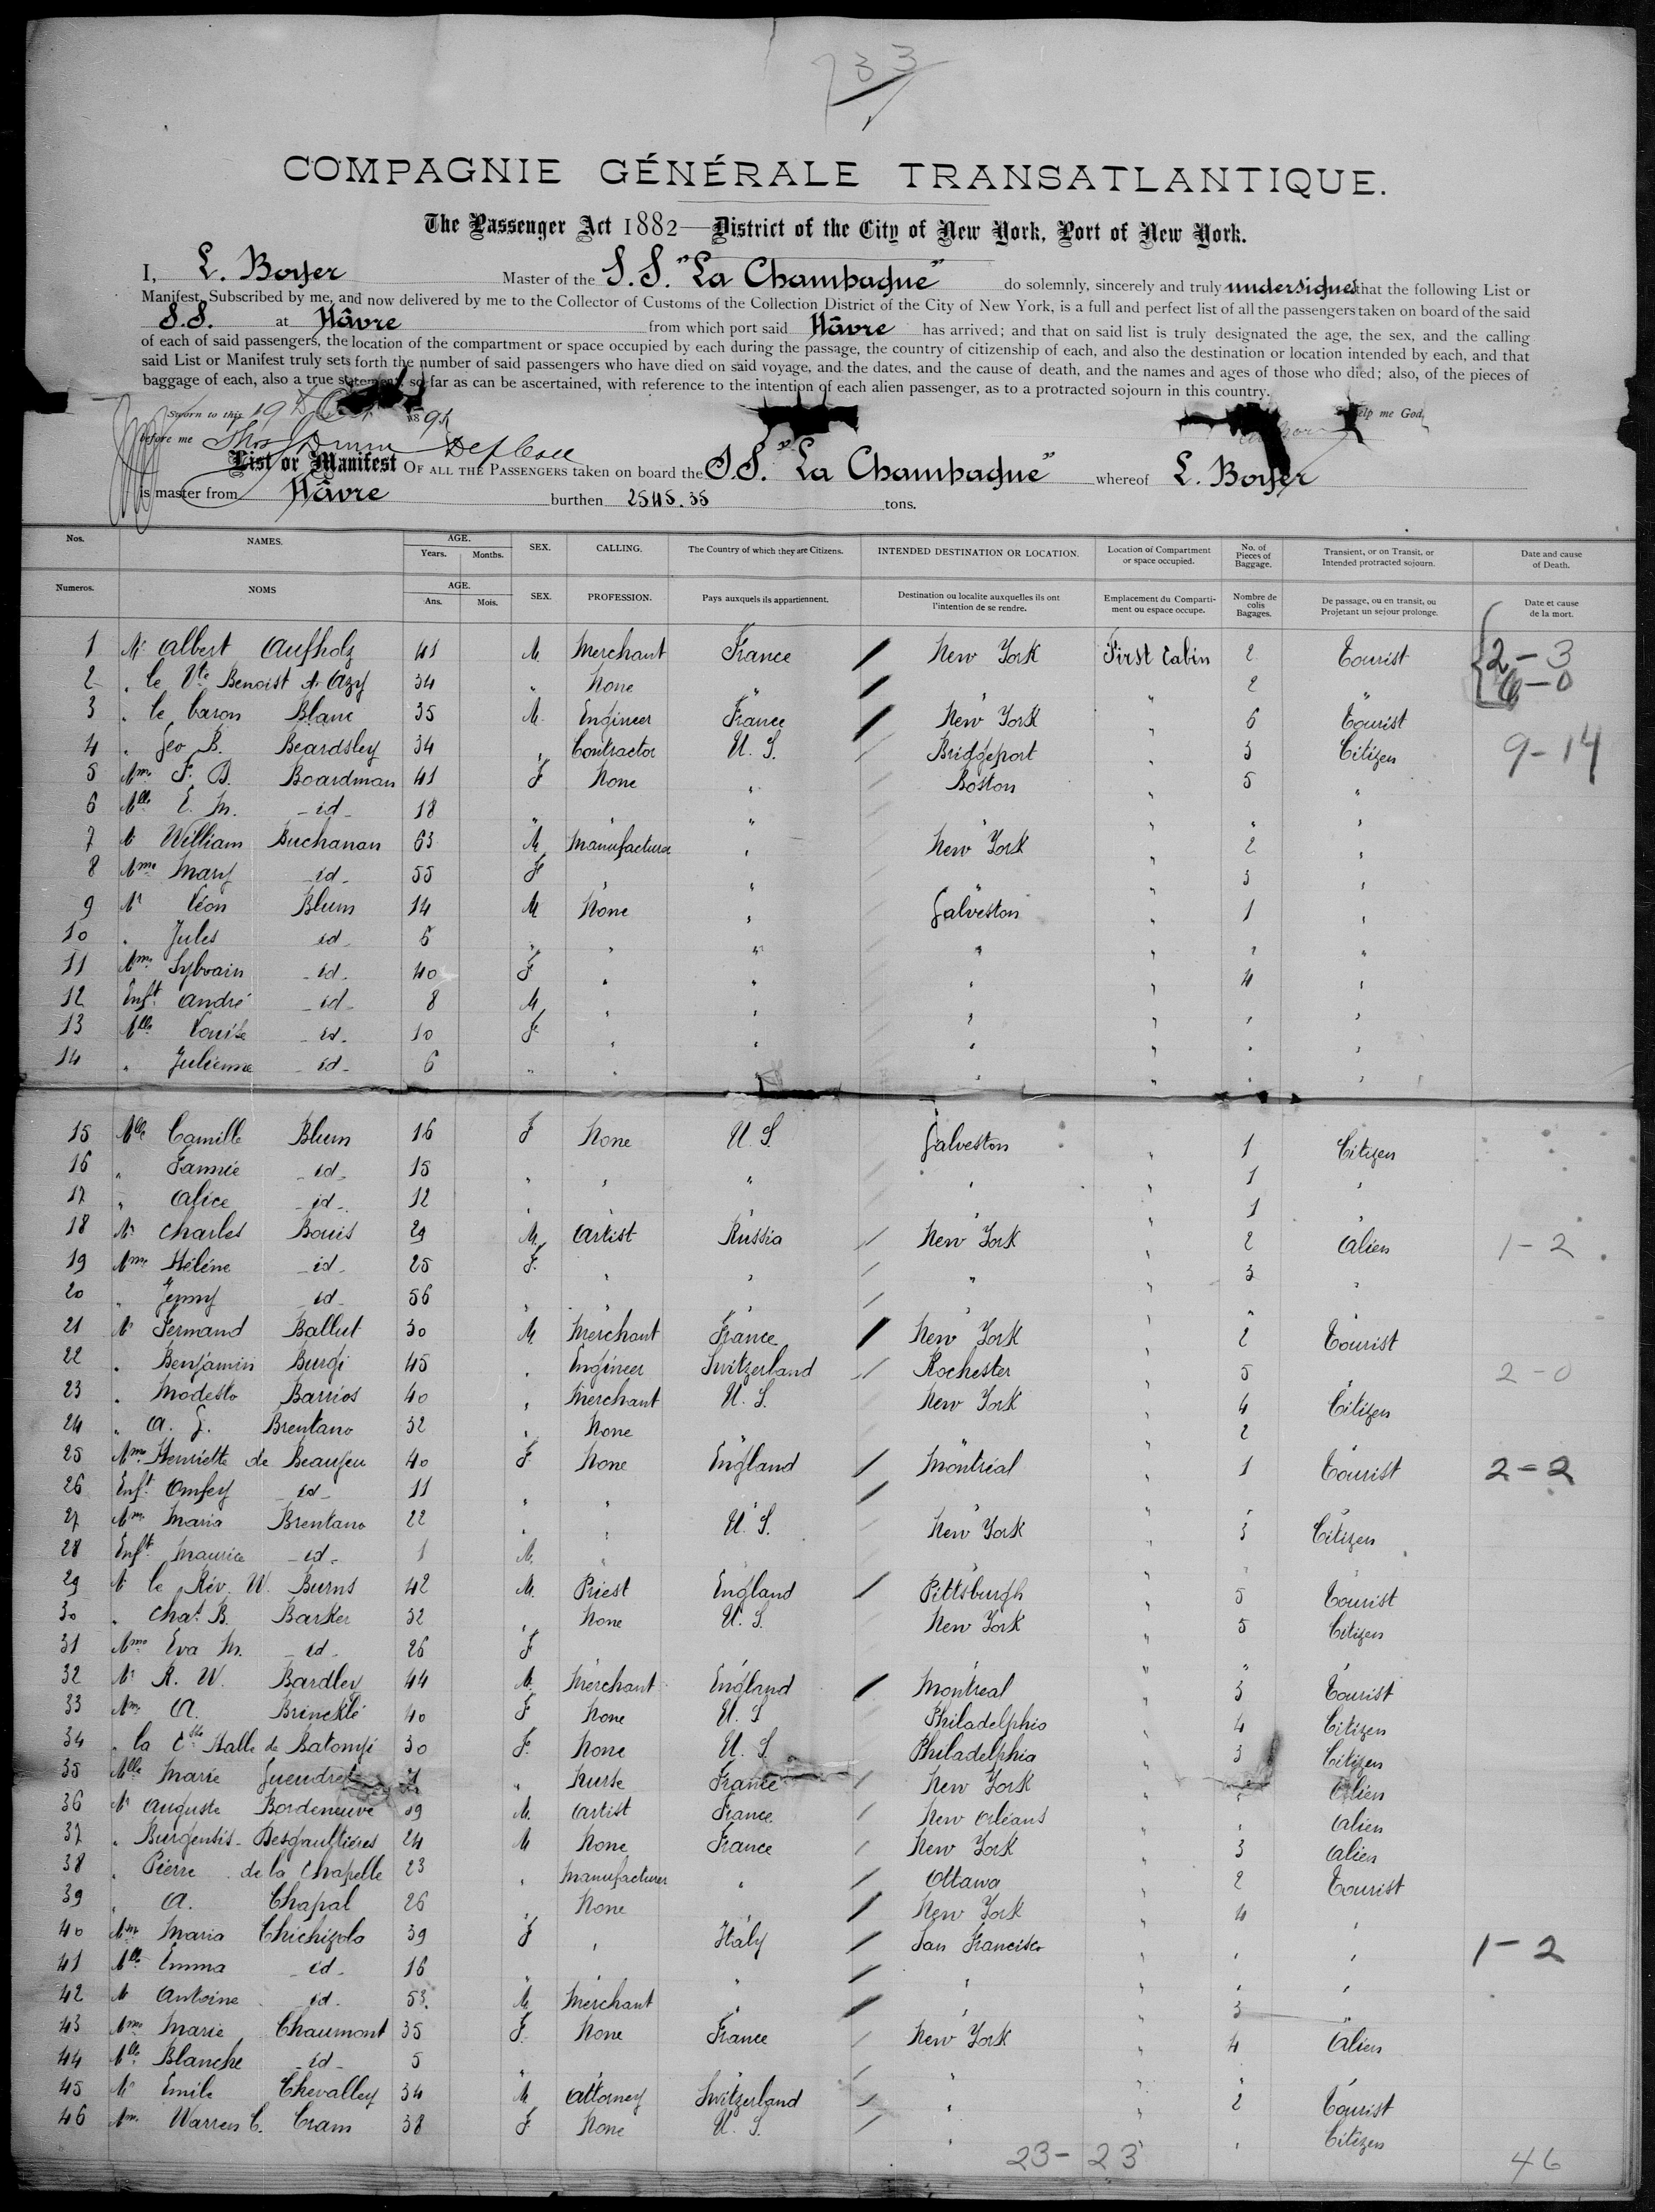 733
COMPAGNIE GÉNÉRALE TRANSATLANTIQUE.
The Passenger Act 1882—District of the City of New York, Port of New York.
I, L. Boyer Master of the S.S. "La Champagne" do solemnly, sincerely and truly undersigned that the following List or
Manifest, Subscribed by me, and now delivered by me to the Collector of Customs of the Collection District of the City of New York, is a full and perfect list of all the passengers taken on board of the said
S.S. at Hâvre from which port said Hâvre has arrived; and that on said list is truly designated the age, the sex, and the calling
of each of said passengers, the location of the compartment or space occupied by each during the passage, the country of citizenship of each, and also the destination or location intended by each, and that
said List or Manifest truly sets forth the number of said passengers who have died on said voyage, and the dates, and the cause of death, and the names and ages of those who died; also, of the pieces of
baggage of each, also a true statement, so far as can be ascertained, with reference to the intention of each alien passenger, as to a protracted sojourn in this country.
Sworn to this 19 189 help me God,
before me
List or Manifest OF ALL THE PASSENGERS taken on board the S.S. "La Champagne" whereof L. Boyer
is master from Hâvre burthen 2545.35 tons.
Nos. NAMES. AGE. Years. Months. SEX. CALLING. The Country of which they are Citizens. INTENDED DESTINATION OR LOCATION. Location of Compartment or space occupied. No. of Pieces of Baggage. Transient, or on Transit, or Intended protracted sojourn. Date and cause of Death.
Numeros. NOMS AGE. Ans. Mois. SEX. PROFESSION. Pays auxquels ils appartiennent. Destination ou localite auxquelles ils ont l'intention de se rendre. Emplacement du Comparti-ment ou espace occupe. Nombre de colis Bagages. De passage, ou en transit, ou Projetant un sejour prolonge. Date et cause de la mort.
1 Mr Albert Aufholz 41 M. Merchant France New York First Cabin 2 Tourist 2-3
2 " le Vte Benoist d'Azy 34 " None " " " 2 " 6-0
3 " le baron Blanc 35 M. Engineer France New York " 6 Tourist
4 " Geo B. Beardsley 34 " Contractor U.S. Bridgeport " 3 Citizen 9-14
5 Mme F. B. Boardman 41 F None " Boston " 5 "
6 Mlle E. M. _id_ 18 " " " " " "
7 Mr William Buchanan 63 M Manufacturer " New York " 2 "
8 Mme Mary _id_ 55 F " " " " 3 "
9 Mr Léon Blum 14 M None " Galveston " 1 "
10 " Jules id 6 " " " " " " "
11 Mme Sylvain _id_ 40 F " " " " 4 "
12 Enft André _id_ 8 M " " " " " "
13 Mlle Louise _id_ 10 F " " " " " "
14 " Julienne _id_ 6 " " " " " " "
15 Mlle Camille Blum 16 F None U.S Galveston " 1 Citizen
16 " Fannie _id_ 15 " " " " " 1 "
17 " Alice _id_ 12 " " " " " 1 "
18 Mr Charles Bouis 29 M. Artist Russia New York " 2 Alien 1-2
19 Mme Hélène _id_ 25 F. " " " " 3 "
20 " Jenny _id_ 56 " " " " " " "
21 Mr Fernand Ballut 30 M. Merchant France New York " 2 Tourist
22 " Benjamin Burgi 45 " Engineer Switzerland Rochester " 5 " 2-0
23 " Modesto Barrios 40 " Merchant U.S. New York " 4 Citizen
24 " A. G. Brentano 32 " None " " " 2 "
25 Mme Henriette de Beaujeu 40 F None England Montréal " 1 Tourist 2-2
26 Enft _id_ 11 " " " " " " "
27 Mme Maria Brentano 22 " " U.S. New York " 3 Citizen
28 Enft Maurice _id_ 1 M. " " " " " "
29 Mr le Rév. W. Burns 42 M. Priest England Pittsburgh " 5 Tourist
30 " Chas. B. Barker 32 " None U.S. New York " 5 Citizen
31 Mme Eva M. _id_ 26 F " " " " " "
32 Mr R. W. Bardley 44 M. Merchant England Montreal " 3 Tourist
33 Mme A. Brincklé 40 F None U.S Philadelphia " 4 Citizen
34 " la Ctsse Halle de Batomfi 30 F. None U.S. Philadelphia " 3 Citizen
35 Mlle Marie Gueudret " Nurse France New York " " Alien
36 Mr Auguste Bordeneuve 39 M. Artist France New Orléans " " Alien
37 " Burgensis-Desgaultières 24 M None France New York " 3 Alien
38 " Pierre de la Chapelle 23 " Manufacturer " Ottawa " 2 Tourist
39 " A. Chapal 26 " None " New York " 4 "
40 Mme Maria Chichizola 39 F " Italy San Francisco " " " 1-2
41 Mlle Emma _id_ 16 " " " " " " "
42 Mr Antoine _id_ 53. M. Merchant " " " 3 "
43 Mme Marie Chaumont 35 F. None France New York " 4 Alien
44 Mlle Blanche _id_ 5 " " " " " " "
45 Mr Emile Chevalley 34 M Attorney Switzerland " " 2 Tourist
46 Mme Warren C. Cram 38 F None U.S. " " " Citizen
23-23 46